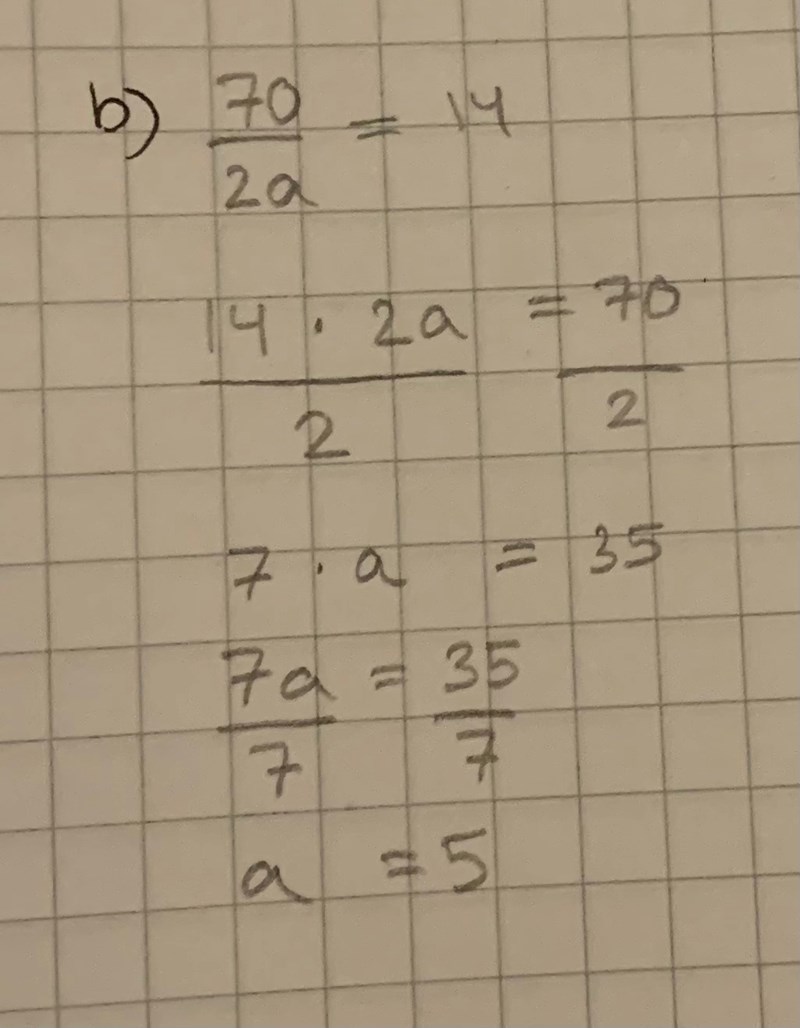 b) 70/2a = 14
14 · 2a/2 = 70/2
7 · a = 35
7a/7 = 35/7
a = 5